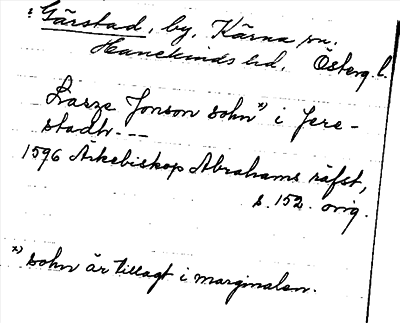 : Gärstad, by, Kärna sn.
Hanekinds hd. Österg. l.
Lasze Jonson sohn*) i Jere-
stadh ---
1596 Ärkebiskop Abrahams räfst,
s. 152. orig.
*) sohn är tillagt i marginalen.